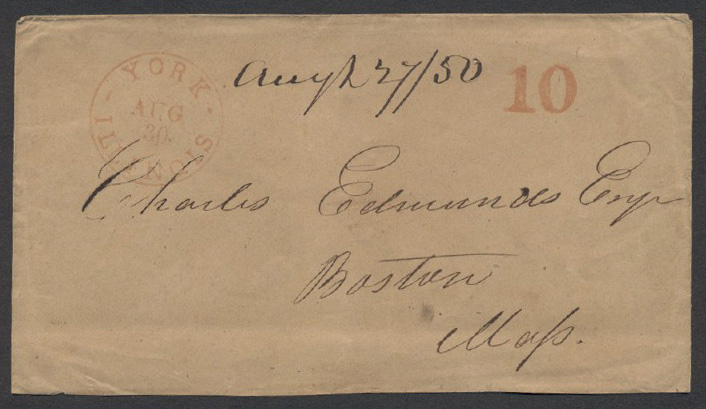 YORK
AUG
30.
ILLINOIS
Augt 27/50
10
Charles Edmunds Esqr
Boston
Mass.